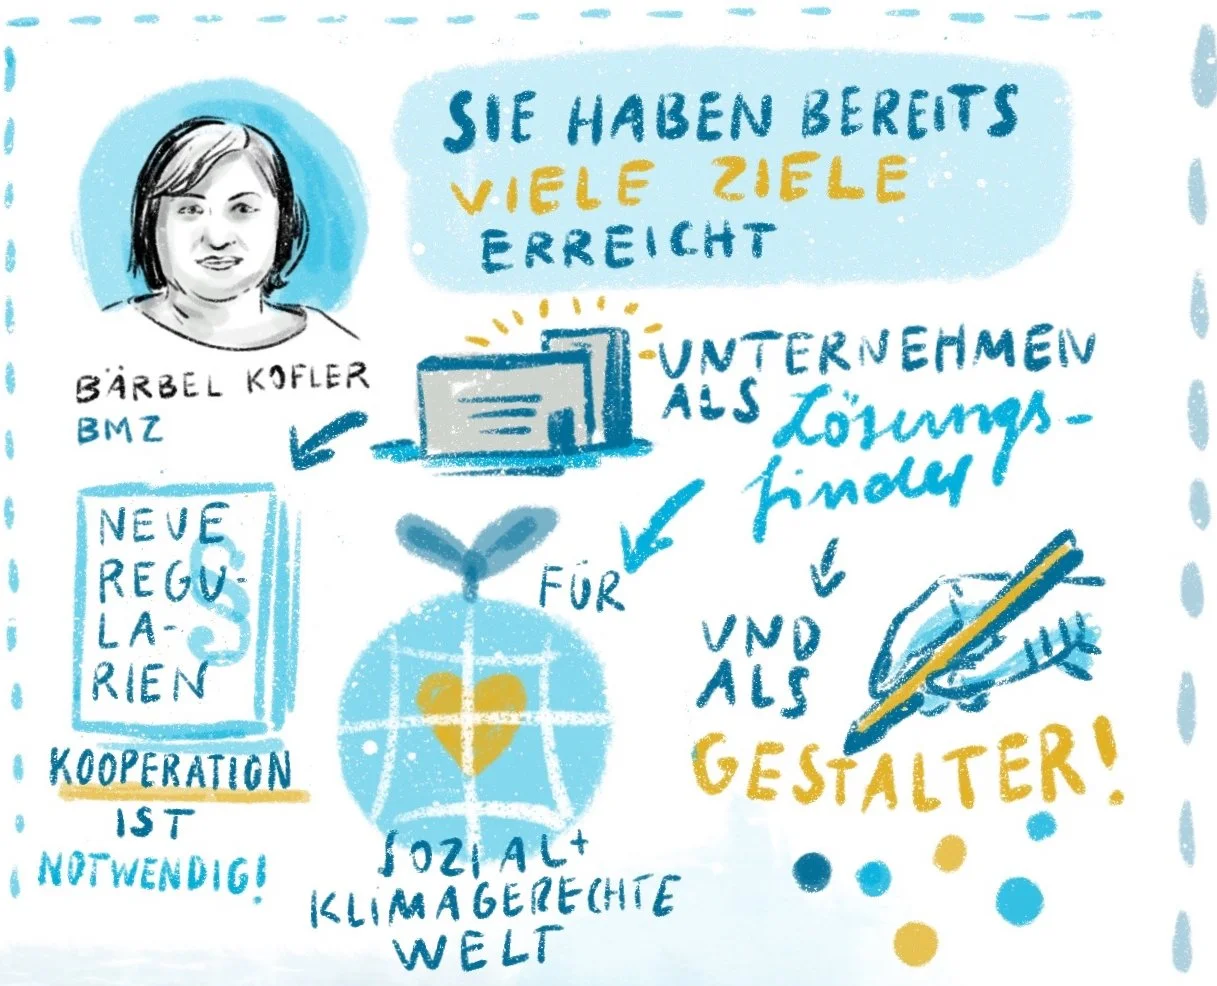 SIE HABEN BEREITS
VIELE ZIELE
ERREICHT
BÄRBEL KOFLER
BMZ
UNTERNEHMEN
ALS Lösungs-
finder
NEUE
REGU-
LA-
RIEN
§
KOOPERATION
IST
NOTWENDIG!
FÜR
SOZIAL+
KLIMAGERECHTE
WELT
UND
ALS
GESTALTER!